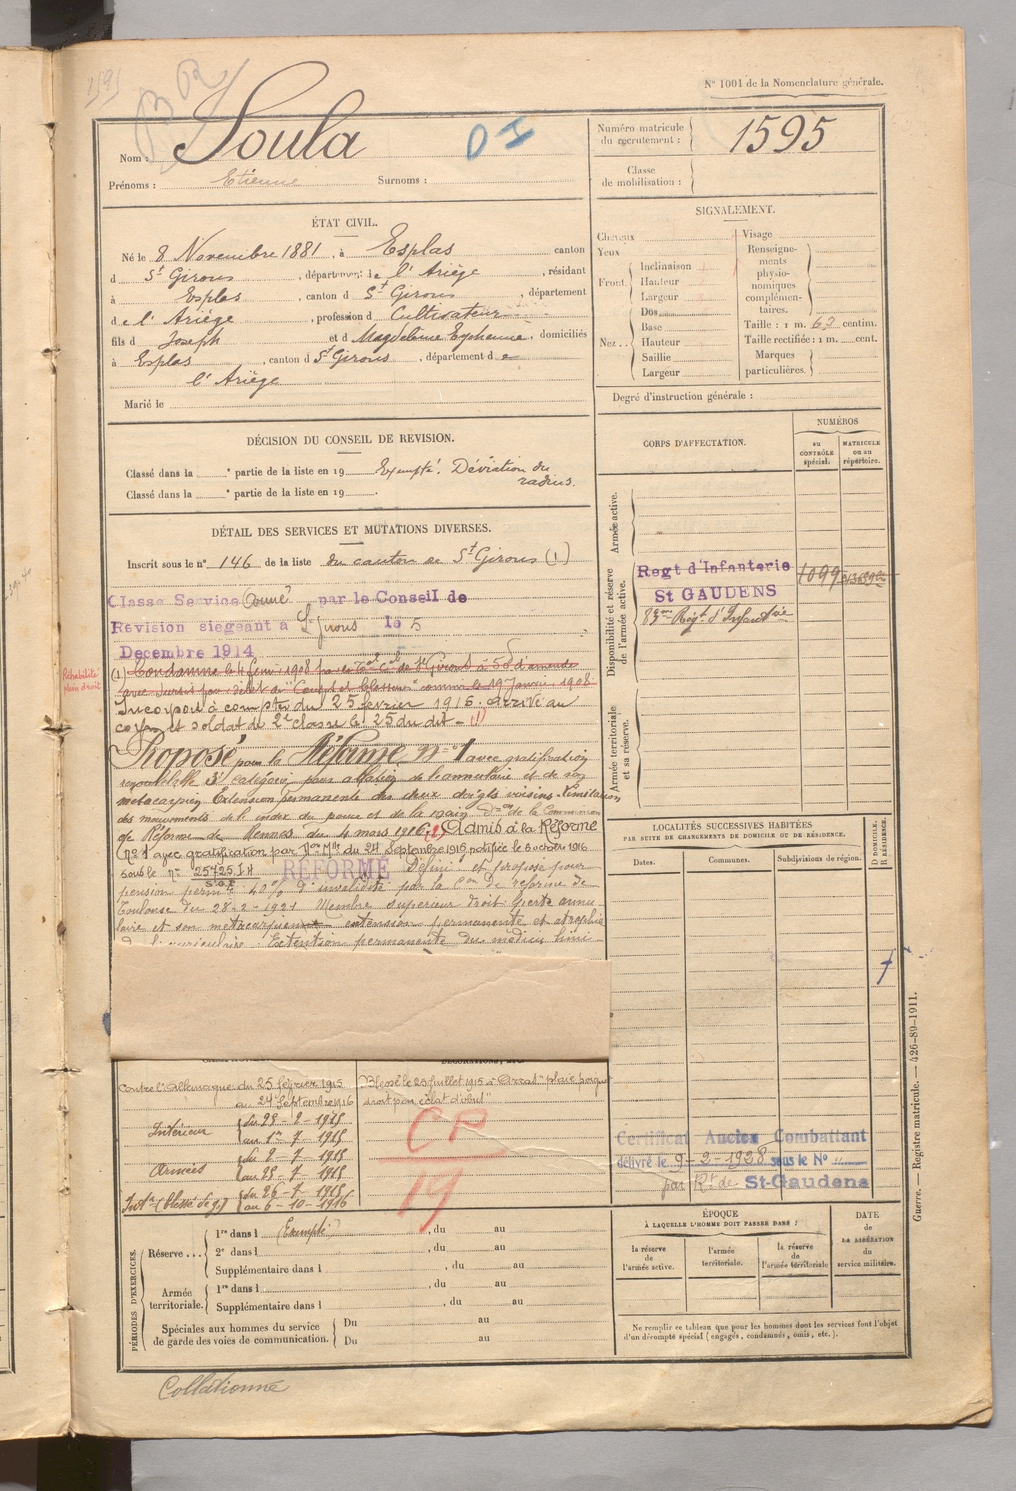 N° 1001 de la Nomenclature générale.
1595
BR
Nom : Soula
OI
Prénoms : Etienne Surnoms :
Numéro matricule du recrutement : 1595
Classe de mobilisation :
ÉTAT CIVIL.
Né le 8 Novembre 1881, à Esplas canton
d St Girons, département de l'Ariège, résidant
à Esplas, canton d St Girons, département
de l'Ariège, profession d Cultivateur
fils d Joseph et d Magdeleine domiciliés
à Esplas, canton d St Girons, département de
l'Ariège
Marié le
SIGNALEMENT.
Cheveux
Yeux
Front. Inclinaison
Hauteur
Largeur
Nez. Dos
Base
Hauteur
Saillie
Largeur
Visage
Renseignements physionomiques complémentaires.
Taille : 1 m. 63 centim.
Taille rectifiée : 1 m. cent.
Marques particulières.
Degré d'instruction générale :
DÉCISION DU CONSEIL DE REVISION.
Classé dans la e partie de la liste en 19 Exempté. Déviation du
radius.
Classé dans la e partie de la liste en 19 .
DÉTAIL DES SERVICES ET MUTATIONS DIVERSES.
Inscrit sous le n° 146 de la liste du canton de St Girons (1)
Classe Service Armé par le Conseil de
Révision siégeant à St Girons le 5
Decembre 1914
Réhabilité plein droit
(1) Condamné le 4 février 1908 par le Tal Cel de St Girons à 50f d'amende
avec sursis pour délit de "Coups et blessures" commis le 19 Janvier 1908
Incorporé à compter du 25 février 1915. Arrivé au
corps et soldat de 2e classe le 25 du dit - (1)
Proposé pour la Réforme n° 1 avec gratification
renouvelable 3e catégorie pour ablation de l'annulaire et de son
métacarpien Extension permanente des deux doigts voisins - limitation
des mouvements de l'index du pouce et de la main. Don de la Commission
de Réforme de Rennes du 4 mars 1916 (2) Admis à la Réforme
N° 1 avec gratification par Don Mlle du 24 Septembre 1916 notifiée le 6 octobre 1916
sous le n° 25725 I.H
RÉFORMÉ
Défini et proposé pour
pension permte 40% d'invalidité par la Con de réforme de
Toulouse du 28-2-1921 Membre supérieur droit perte annu
laire et son métacarpien extension permanente et atrophie
de l'auriculaire. Extention permanente du médius limi
CORPS D'AFFECTATION.
NUMÉROS
au contrôle spécial.
matricule ou au répertoire.
Armée active.
Disponibilité et réserve de l'armée active.
Regt d'Infanterie
St GAUDENS
83me Régt d'Infanterie
1099
Armée territoriale et sa réserve.
LOCALITÉS SUCCESSIVES HABITÉES
PAR SUITE DE CHANGEMENTS DE DOMICILE OU DE RÉSIDENCE.
Dates. Communes. Subdivisions de région.
D DOMICILE. R RÉSIDENCE.
contre l'Allemagne du 25 février 1915
au 24 Septembre 1916
Intérieur du 25-2-1915
au 1er-7-1915
Armées du 2-7-1915
au 25-7-1915
Intr (blessé de g.) du 26-7-1915
au 6-10-1916
Blessé le 25 juillet 1915 à Arras "plaie poignet
droit par éclat d'obus"
CP
19
Certificat Ancien Combattant
délivré le 9-2-1928 sous le N° "
par Rt de St-Gaudens
PÉRIODES D'EXERCICES.
Réserve ... 1re dans l (Exempté), du au
2e dans l , du au
Supplémentaire dans l , du au
Armée territoriale. 1re dans l , du au
Supplémentaire dans l , du au
Spéciales aux hommes du service de garde des voies de communication. Du au
Du au
ÉPOQUE
À LAQUELLE L'HOMME DOIT PASSER DANS :
la réserve de l'armée active.
l'armée territoriale.
la réserve de l'armée territoriale
DATE de LA LIBÉRATION du service militaire.
Ne remplir ce tableau que pour les hommes dont les services font l'objet
d'un décompte spécial (engagés, condamnés, omis, etc.).
Guerre. — Registre matricule. — 426-89-1911.
Collationné